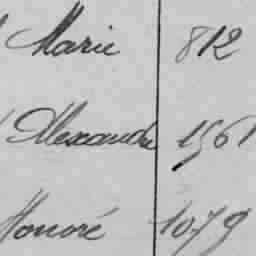 Marie 812
Alexandre 1561
Honoré 1079